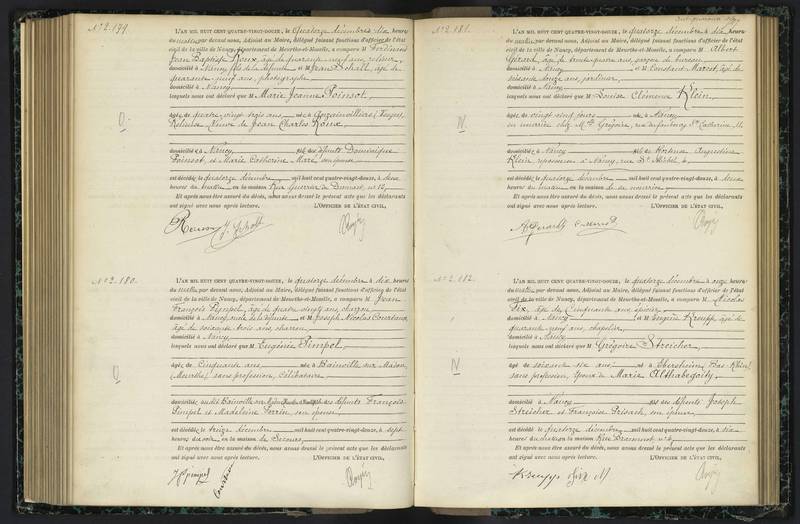 N° 2.179.
L'AN MIL HUIT CENT QUATRE-VINGT-DOUZE, le quatorze décembre à dix heures
du matin, par devant nous, Adjoint au Maire, délégué faisant fonctions d'officier de l'état
civil de la ville de Nancy, département de Meurthe-et-Moselle, a comparu M Ferdinand
Jean Baptiste Roux, âgé de quarante neuf ans,
domicilié à Nancy, fils de la défunte et M Jean Schall, âgé de
quarante neuf ans, photographe
domicilié à Nancy
lesquels nous ont déclaré que M Marie Jeanne Poinsot,
âgée de quatre vingt trois ans née à (Vosges)
Veuve de Jean Charles Roux
domiciliée à Nancy fille des défunts Dominique
Poinsot, et Marie Catherine
est décédée le quatorze décembre mil huit cent quatre-vingt-douze, à deux
heures du matin en la maison Rue Guerrier de Dumast, n° 12,
Et après nous être assuré du décès, nous avons dressé le présent acte que les déclarants
ont signé avec nous après lecture. L'OFFICIER DE L'ÉTAT CIVIL,
N° 2.180.
L'AN MIL HUIT CENT QUATRE-VINGT-DOUZE, le quatorze décembre à dix heures
du matin, par devant nous, Adjoint au Maire, délégué faisant fonctions d'officier de l'état
civil de la ville de Nancy, département de Meurthe-et-Moselle, a comparu M Jean
François Pimpel, âgé de quatre vingt ans, charron
domicilié à Nancy, de la défunte et M Joseph Nicolas
âgé de soixante trois ans, charron
domicilié à Nancy
lesquels nous ont déclaré que M Eugénie Pimpel,
âgée de cinquante ans née à Bainville sur Madon
(Meurthe) sans profession, célibataire
domiciliée audit Bainville sur Madon fille des défunts François
Pimpel et Madeleine Perrin, son épouse
est décédée le treize décembre mil huit cent quatre-vingt-douze, à sept
heures du soir en la maison de Secours
Et après nous être assuré du décès, nous avons dressé le présent acte que les déclarants
ont signé avec nous après lecture. L'OFFICIER DE L'ÉTAT CIVIL,
J F pimpel
N° 2.181.
L'AN MIL HUIT CENT QUATRE-VINGT-DOUZE, le quatorze décembre à dix heures
du matin, par devant nous, Adjoint au Maire, délégué faisant fonctions d'officier de l'état
civil de la ville de Nancy, département de Meurthe-et-Moselle, a comparu M Albert
Gérard, âgé de trente quatre ans, garçon de bureau
domicilié à Nancy et M Constant Marcot, âgé de
soixante douze ans, jardinier
domicilié à Nancy
lesquels nous ont déclaré que M Louise Clémence Klein,
âgée de vingt neuf jours née à Nancy
en nourrice chez Mme Grégoire, rue du faubourg Ste Catherine, 11,
domiciliée à Nancy fille de Hortense Augustine
Klein, repasseuse à Nancy, rue St Michel,
est décédée le quatorze décembre mil huit cent quatre-vingt-douze, à deux
heures du matin en la maison de sa nourrice
Et après nous être assuré du décès, nous avons dressé le présent acte que les déclarants
ont signé avec nous après lecture. L'OFFICIER DE L'ÉTAT CIVIL,
N° 2.182.
L'AN MIL HUIT CENT QUATRE-VINGT-DOUZE, le quatorze décembre à onze heures
du matin, par devant nous, Adjoint au Maire, délégué faisant fonctions d'officier de l'état
civil de la ville de Nancy, département de Meurthe-et-Moselle, a comparu M Nicolas
âgé de cinquante ans, épicier
domicilié à Nancy et M Eugène Kreupp, âgé de
quarante neuf ans, chapelier
domicilié à Nancy
lesquels nous ont déclaré que M Grégoire Streicher,
âgé de soixante six ans né à Ebersheim, (Bas-Rhin)
sans profession, époux de Marie Althabegoity
domicilié à Nancy fils des défunts Joseph
Streicher et Françoise son épouse
est décédé le quatorze décembre mil huit cent quatre-vingt-douze, à dix
heures du matin en la maison Rue n° 4,
Et après nous être assuré du décès, nous avons dressé le présent acte que les déclarants
ont signé avec nous après lecture. L'OFFICIER DE L'ÉTAT CIVIL,